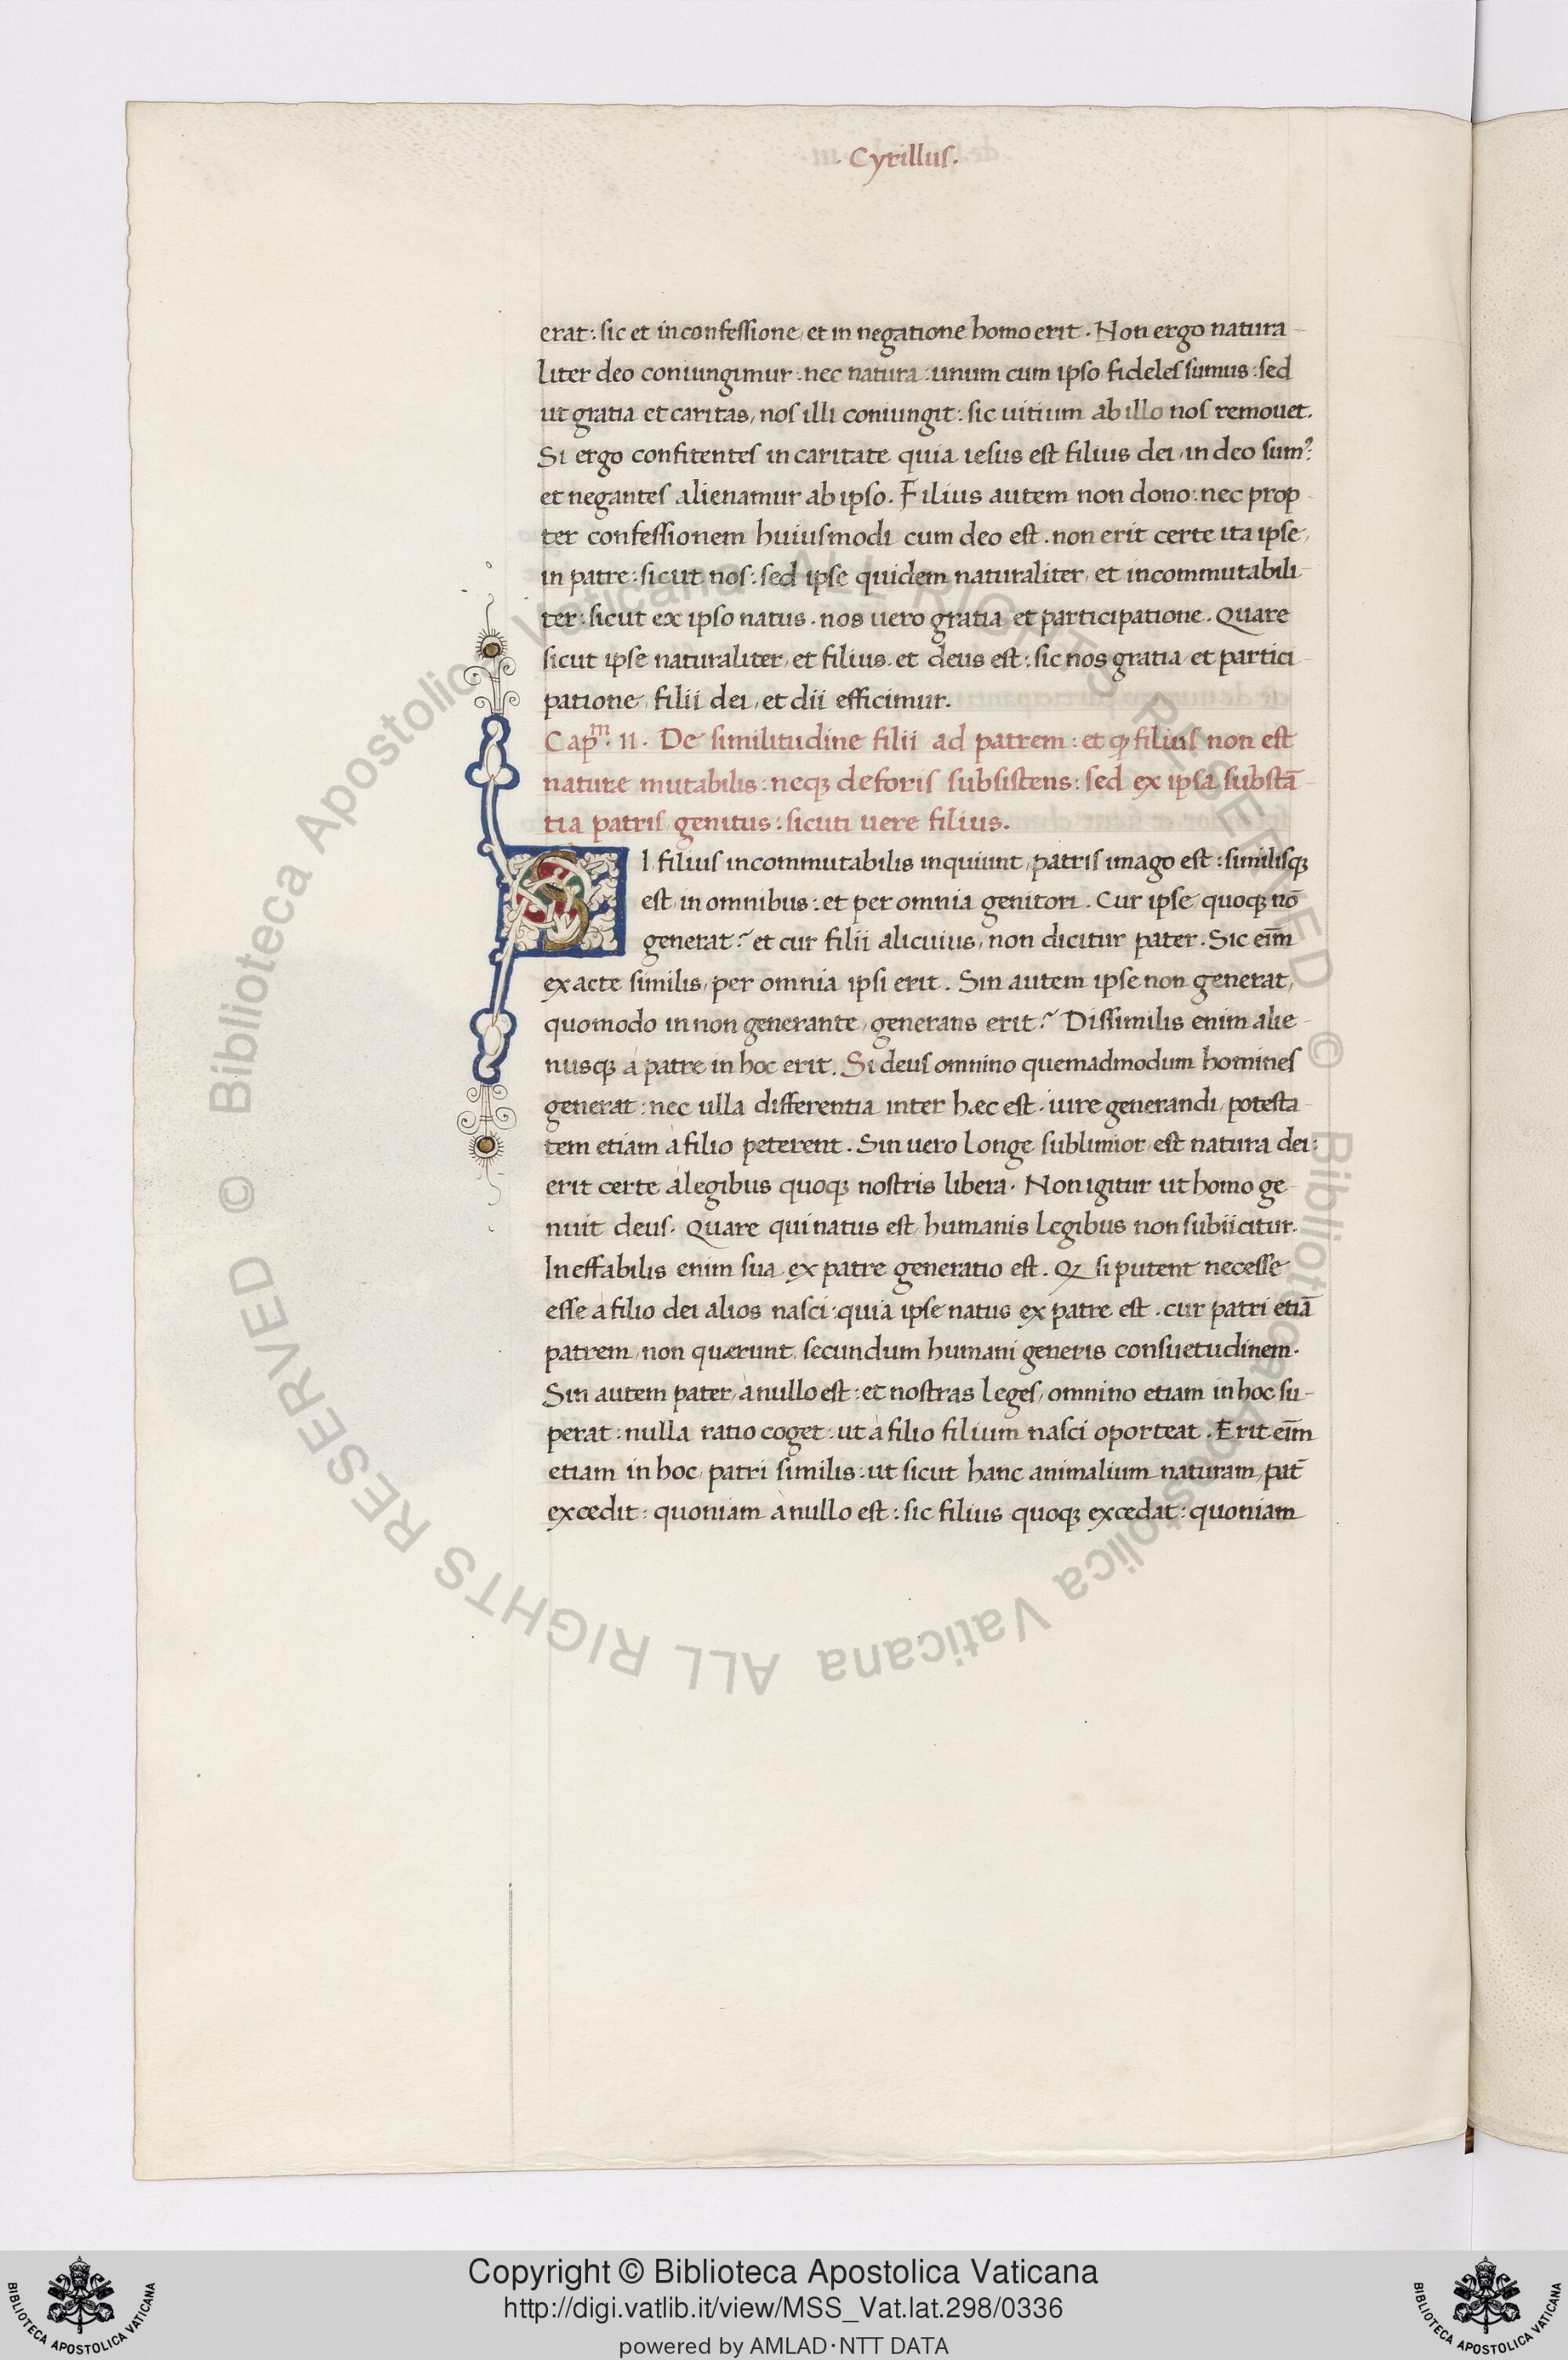 . Cyrillus .
erat : sic et in confessione, et in negatione homo erit . Non ergo natura
liter deo coniungimur : nec natura : unum cum ipso fideles sumus : sed
ut gratia et caritas, nos illi coniungit : sic uitium ab illo nos remouet.
Si ergo confitentes in caritate quia iesus est filius dei, in deo sumꝰ:
et negantes alienamur ab ipso. Filius autem non dono : nec prop
ter confessionem huiusmodi cum deo est . non erit certe ita ipse,
in patre : sicut nos : sed ipse quidem naturaliter, et incommutabili
ter : sicut ex ipso natus . nos uero gratia, et participatione . Quare
sicut ipse naturaliter, et filius, et deus est : sic nos gratia, et partici
patione, filii dei, et dii efficimur.
Capᵐ. II. De similitudine filii ad patrem : et ꝙ filius non est
nature mutabilis : neqꝫ deforis subsistens : sed ex ipsa substā
tia patris genitus : sicuti uere filius.
SI filius incommutabilis inquiunt, patris imago est : similisqꝫ
est in omnibus : et per omnia genitori . Cur ipse quoqꝫ nō
generat? et cur filii alicuius, non dicitur pater . Sic eīm
exacte similis, per omnia ipsi erit . Sin autem ipse non generat,
quomodo in non generante, generans erit? Dissimilis enim alie
nusqꝫ a patre in hoc erit. Si deus omnino quemadmodum homines
generat : nec ulla differentia inter hæc est . iure generandi, potesta
tem etiam a filio peterent . Sin uero longe sublimior est natura dei :
erit certe a legibus quoqꝫ nostris libera . Non igitur ut homo ge
nuit deus. Quare qui natus est, humanis legibus non subiicitur.
Ineffabilis enim sua ex patre generatio est . Qꝫ si putent necesse
esse a filio dei alios nasci : quia ipse natus ex patre est . cur patri etiā
patrem, non quærunt, secundum humani generis consuetudinem.
Sin autem pater, a nullo est : et nostras leges, omnino etiam in hoc su-
perat : nulla ratio coget : ut a filio filium nasci oporteat . Erit eīm
etiam in hoc, patri similis : ut sicut hanc animalium naturam, pat̄
excedit : quoniam a nullo est : sic filius quoqꝫ excedat : quoniam
© Biblioteca Apostolica Vaticana ALL RIGHTS RESERVED © Biblioteca Apostolica Vaticana ALL RIGHTS RESERVED
Copyright © Biblioteca Apostolica Vaticana
http://digi.vatlib.it/view/MSS_Vat.lat.298/0336
powered by AMLAD·NTT DATA
BIBLIOTECA APOSTOLICA VATICANA
BIBLIOTECA APOSTOLICA VATICANA